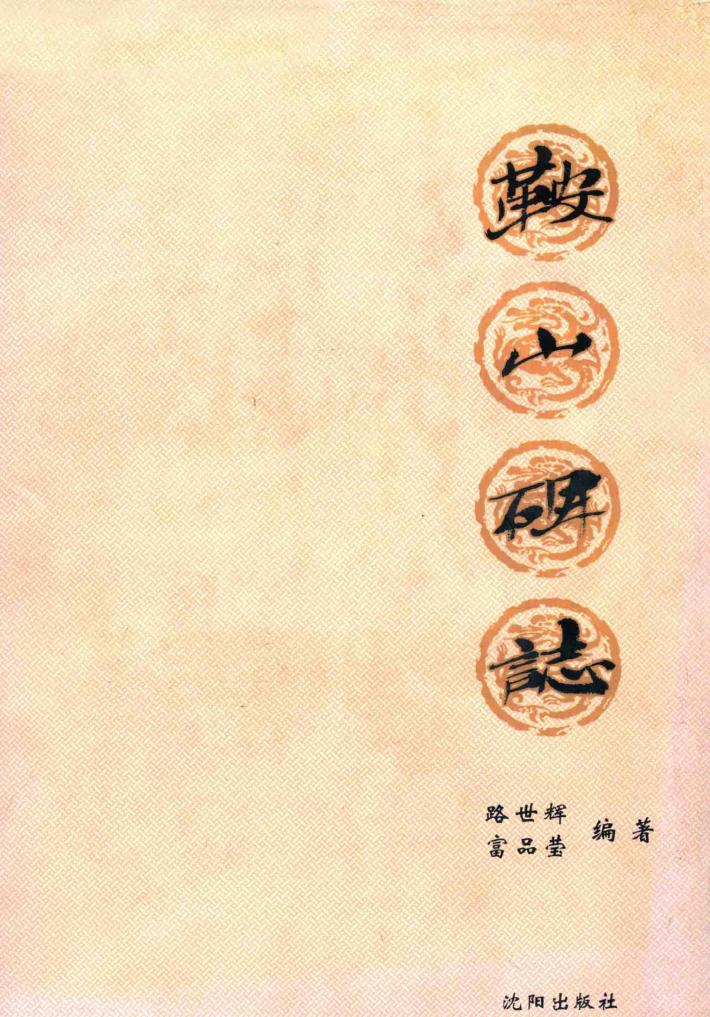 鞍山碑誌
路世辉
富品莹
编著
沈阳出版社